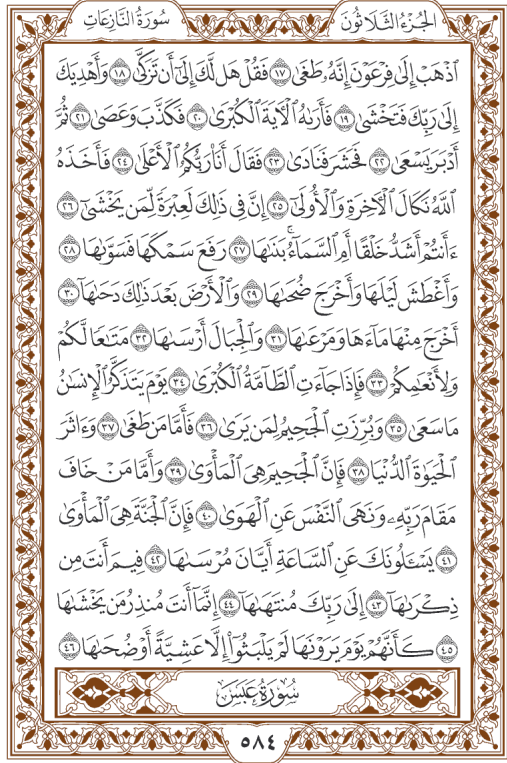 الجزء الثلاثون سورة النازعات
ٱذۡهَبۡ إِلَىٰ فِرۡعَوۡنَ إِنَّهُۥ طَغَىٰ ١٧ فَقُلۡ هَل لَّكَ إِلَىٰٓ أَن تَزَكَّىٰ ١٨ وَأَهۡدِيَكَ
إِلَىٰ رَبِّكَ فَتَخۡشَىٰ ١٩ فَأَرَىٰهُ ٱلۡأٓيَةَ ٱلۡكُبۡرَىٰ ٢٠ فَكَذَّبَ وَعَصَىٰ ٢١ ثُمَّ
أَدۡبَرَ يَسۡعَىٰ ٢٢ فَحَشَرَ فَنَادَىٰ ٢٣ فَقَالَ أَنَا۠ رَبُّكُمُ ٱلۡأَعۡلَىٰ ٢٤ فَأَخَذَهُ
ٱللَّهُ نَكَالَ ٱلۡأٓخِرَةِ وَٱلۡأُولَىٰٓ ٢٥ إِنَّ فِي ذَٰلِكَ لَعِبۡرَةٗ لِّمَن يَخۡشَىٰٓ ٢٦
ءَأَنتُمۡ أَشَدُّ خَلۡقًا أَمِ ٱلسَّمَآءُۚ بَنَىٰهَا ٢٧ رَفَعَ سَمۡكَهَا فَسَوَّىٰهَا ٢٨
وَأَغۡطَشَ لَيۡلَهَا وَأَخۡرَجَ ضُحَىٰهَا ٢٩ وَٱلۡأَرۡضَ بَعۡدَ ذَٰلِكَ دَحَىٰهَآ ٣٠
أَخۡرَجَ مِنۡهَا مَآءَهَا وَمَرۡعَىٰهَا ٣١ وَٱلۡجِبَالَ أَرۡسَىٰهَا ٣٢ مَتَٰعٗا لَّكُمۡ
وَلِأَنۡعَٰمِكُمۡ ٣٣ فَإِذَا جَآءَتِ ٱلطَّآمَّةُ ٱلۡكُبۡرَىٰ ٣٤ يَوۡمَ يَتَذَكَّرُ ٱلۡإِنسَٰنُ
مَا سَعَىٰ ٣٥ وَبُرِّزَتِ ٱلۡجَحِيمُ لِمَن يَرَىٰ ٣٦ فَأَمَّا مَن طَغَىٰ ٣٧ وَءَاثَرَ
ٱلۡحَيَوٰةَ ٱلدُّنۡيَا ٣٨ فَإِنَّ ٱلۡجَحِيمَ هِيَ ٱلۡمَأۡوَىٰ ٣٩ وَأَمَّا مَنۡ خَافَ
مَقَامَ رَبِّهِۦ وَنَهَى ٱلنَّفۡسَ عَنِ ٱلۡهَوَىٰ ٤٠ فَإِنَّ ٱلۡجَنَّةَ هِيَ ٱلۡمَأۡوَىٰ
٤١ يَسۡـَٔلُونَكَ عَنِ ٱلسَّاعَةِ أَيَّانَ مُرۡسَىٰهَا ٤٢ فِيمَ أَنتَ مِن
ذِكۡرَىٰهَآ ٤٣ إِلَىٰ رَبِّكَ مُنتَهَىٰهَآ ٤٤ إِنَّمَآ أَنتَ مُنذِرُ مَن يَخۡشَىٰهَا
٤٥ كَأَنَّهُمۡ يَوۡمَ يَرَوۡنَهَا لَمۡ يَلۡبَثُوٓاْ إِلَّا عَشِيَّةً أَوۡ ضُحَىٰهَا ٤٦
سورة عبس
٥٨٤